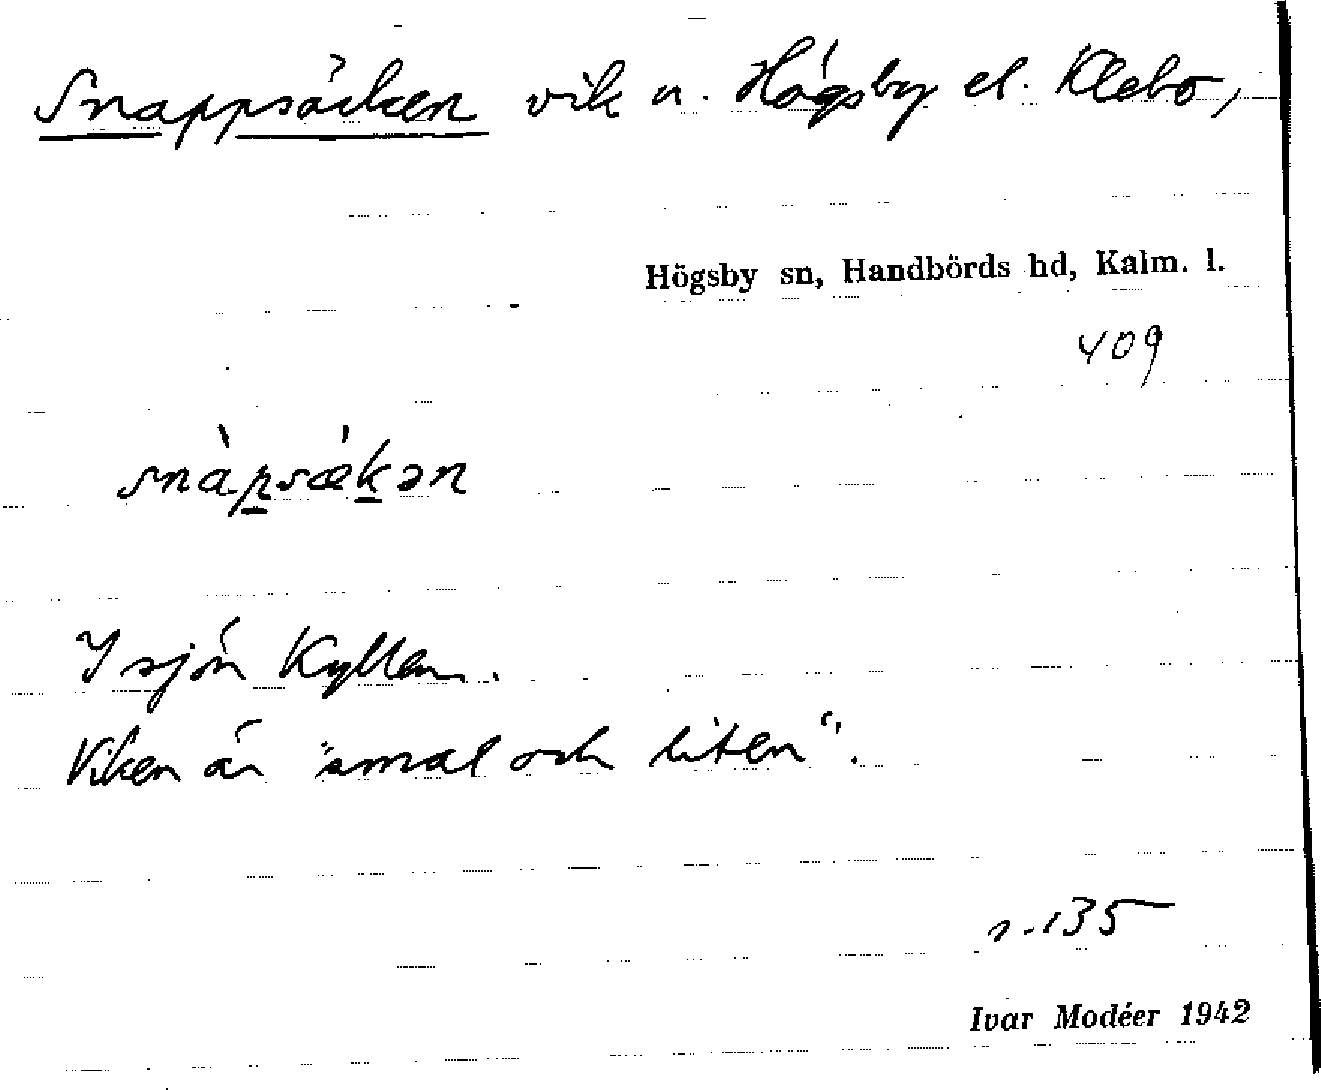 Snappsäcken vik u. Högsby el. Klebo,
Högsby sn, Handbörds hd, Kalm. l.
409
snàpsǽkən
I sjön Kyllen.
Viken är "smal och liten".
s. 135
Ivar Modéer 1942